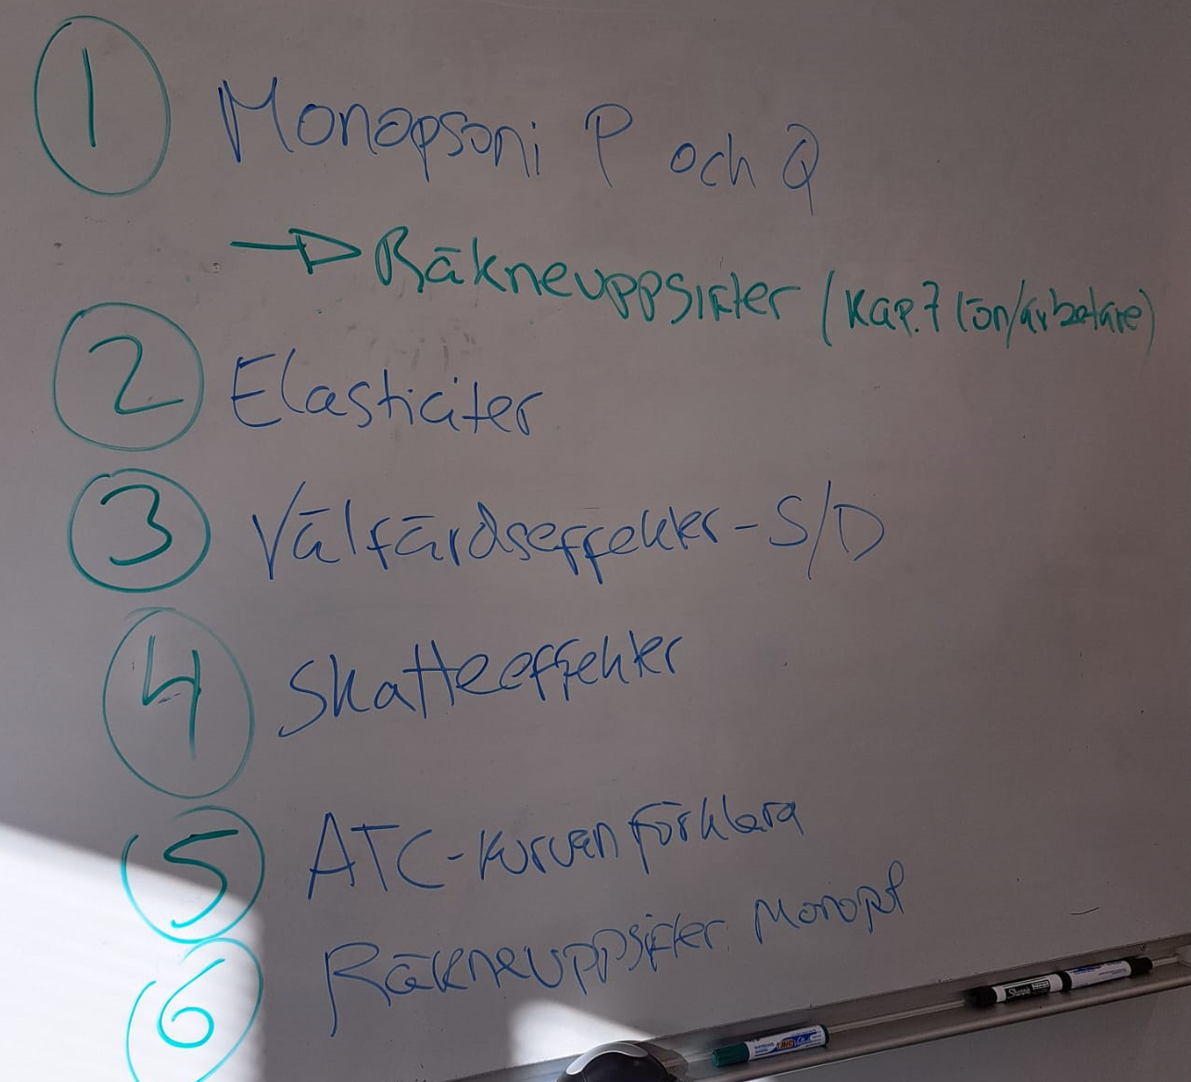 1 Monopsoni P och Q
→ Räkneuppsifter (Kap.7 lön/arbetare)
2 Elasticiter
3 Välfärdseffekter - S/D
4 Skatteeffekter
5 ATC-kurvan förklara
6 Räkneuppsifter Monopol
Sharpie